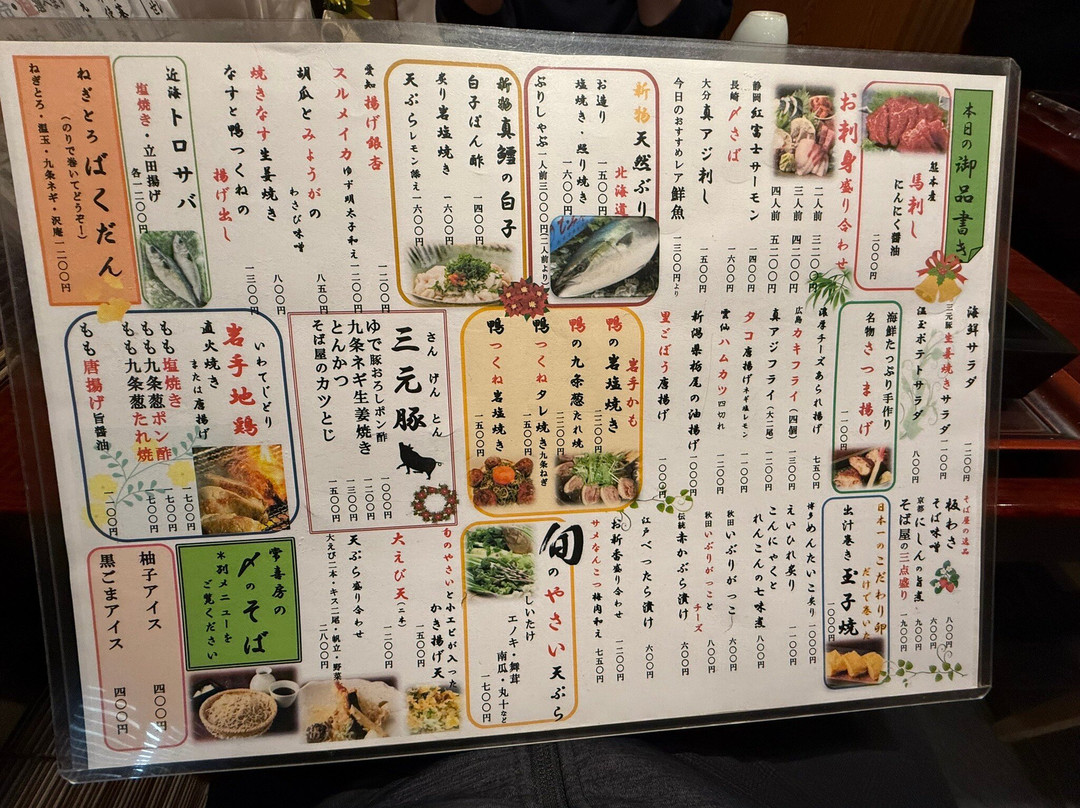 本日の御品書き
熊本産
馬刺し
にんにく醤油
二〇〇〇円
お刺身盛り合わせ
二人前 三二〇〇円
三人前 四二〇〇円
四人前 五二〇〇円
静岡 紅富士サーモン 一四〇〇円
長崎 〆さば 一六〇〇円
大分 真アジ刺し 一五〇〇円
今日のおすすめレア鮮魚 一三〇〇円より
新物 天然ぶり
北海道
お造り 一五〇〇円
塩焼き・照り焼き 一六〇〇円
ぶりしゃぶ 一人前三〇〇〇円(二人前より)
新物 真鱈の白子
白子ぽん酢 一四〇〇円
炙り岩塩焼き 一六〇〇円
天ぷら レモン添え 一六〇〇円
愛知 揚げ銀杏 一二〇〇円
スルメイカ ゆず明太子和え 一二〇〇円
胡瓜とみょうがの
わさび味噌 八五〇円
焼きなす生姜焼き 八〇〇円
なすと鴨つくねの
揚げ出し 一三〇〇円
近海 トロサバ
塩焼き・立田揚げ
各一二〇〇円
ねぎとろ ばくだん
(のりで巻いてどうぞー)
ねぎとろ・温玉・九条ネギ・沢庵 一二〇〇円
海鮮サラダ 一二〇〇円
三元豚 生姜焼きサラダ 一一〇〇円
温玉ポテトサラダ 八〇〇円
海鮮たっぷり手作り
名物 さつま揚げ
一一〇〇円
濃厚チーズあられ揚げ 七五〇円
広島 カキフライ(四個) 一三〇〇円
真アジフライ(大二尾) 一二〇〇円
タコ唐揚げ ネギ塩レモン 一一〇〇円
雲仙 ハムカツ 四切れ 九〇〇円
新潟県栃尾の油揚げ 一〇〇〇円
里ごぼう唐揚げ 一〇〇〇円
岩手かも
鴨の岩塩焼き 二二〇〇円
鴨の九条葱たれ焼 二二〇〇円
鴨つくねタレ焼き 九条ねぎ 一五〇〇円
鴨つくね岩塩焼き 一五〇〇円
さんげんとん
三元豚
ゆで豚おろしポン酢 一一〇〇円
九条ネギ生姜焼き 一二〇〇円
とんかつ 一三〇〇円
そば屋のカツとじ 一五〇〇円
いわてじどり
岩手地鶏
直火焼き
または唐揚げ
もも塩焼き 一七〇〇円
もも九条葱ポン酢 一七〇〇円
もも九条葱たれ焼 一七〇〇円
もも唐揚げ 旨醤油 一一〇〇円
そば屋の逸品
板わさ 八〇〇円
そば味噌 六〇〇円
京都 にしんの旨煮 九〇〇円
そば屋の三点盛り 一九〇〇円
日本一のこだわり卵
だけで巻いた
出汁巻き 玉子焼
一〇〇〇円
博多 めんたいこ炙り 一〇〇〇円
えいひれ炙り 一一〇〇円
こんにゃくと
れんこんの七味煮 八〇〇円
秋田 いぶりがっこ 六〇〇円
秋田 いぶりがっこと
チーズ 八〇〇円
伝統 赤かぶら漬け 六〇〇円
江戸 べったら漬け 六〇〇円
お新香盛り合わせ 一二〇〇円
サメなんこつ梅肉和え 七五〇円
旬のやさい天ぷら
しいたけ
エノキ・舞茸
南瓜・丸十など
一七〇〇円
旬のやさいと小エビが入った
かき揚げ天 一五〇〇円
大えび天(二本) 一六〇〇円
天ぷら盛り合わせ
大えび二本・キス二尾・帆立・野菜 二八〇〇円
常喜房の
〆のそば
※別メニューを
ご覧ください
柚子アイス 四〇〇円
黒ごまアイス 四〇〇円